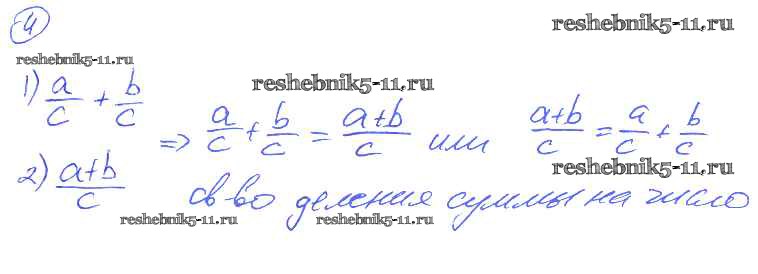 4
reshebnik5-11.ru
reshebnik5-11.ru
1) a/c + b/c
reshebnik5-11.ru
=> a/c + b/c = a+b/c или a+b/c = a/c + b/c
2) a+b/c
reshebnik5-11.ru
св-во деления суммы на число
reshebnik5-11.ru reshebnik5-11.ru